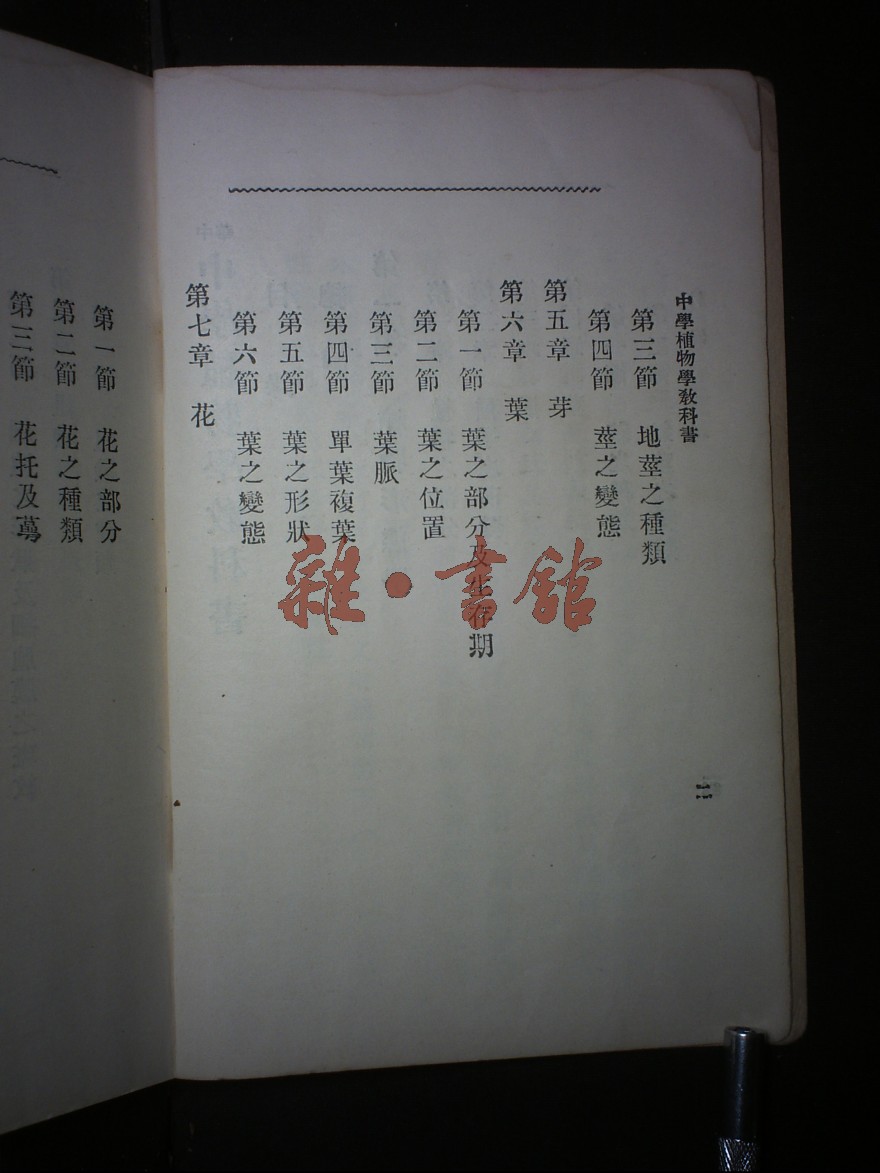 中學植物學敎科書
第三節 地莖之種類
第四節 莖之變態
第五章 芽
第六章 葉
第一節 葉之部分及生存期
第二節 葉之位置
第三節 葉脈
第四節 單葉複葉
第五節 葉之形狀
第六節 葉之變態
第七章 花
二
第一節 花之部分
第二節 花之種類
第三節 花托及萼
雜·書館